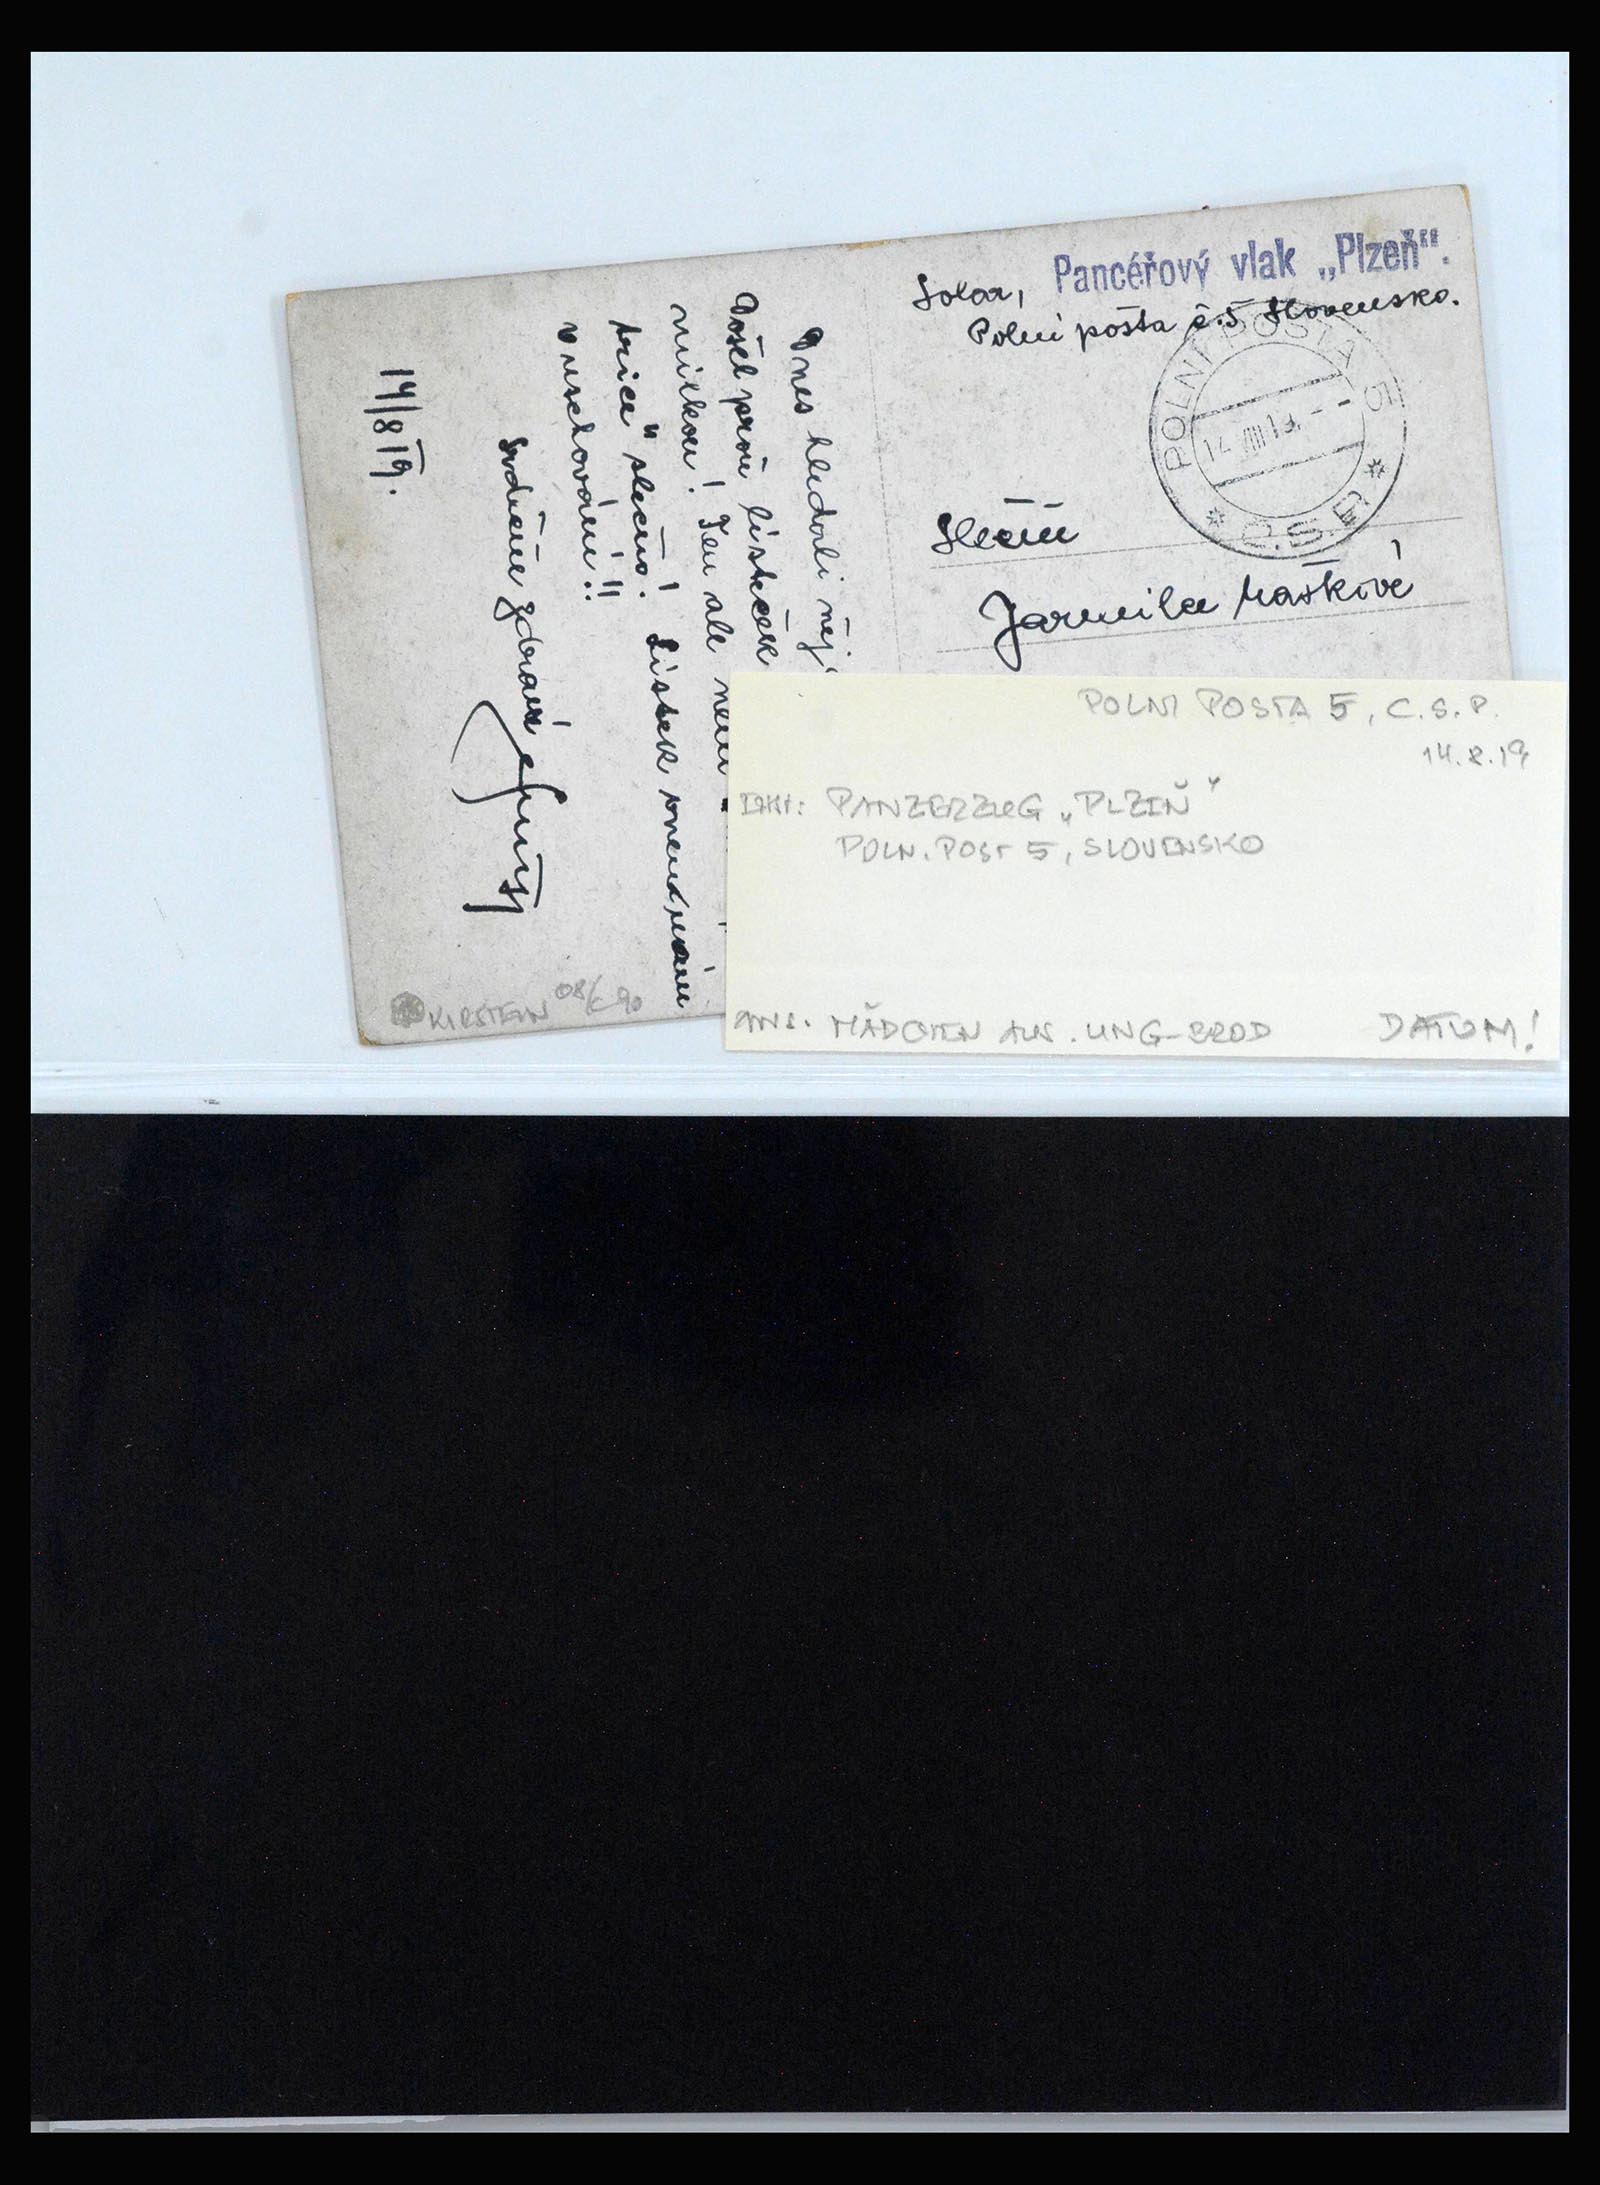 Pancéřový vlak „Plzeň".
Polní pošta č. 5 Slovensko.
POLNÍ POŠTA 5
14 VIII 19 - -
* Č.S.P. *
Slečně
Jarmila Maškové
Dnes hledali
Došel první lísteček
milkou! Ten ale není
" slečno! Lístek
v uschování!!
Srdečně zdraví
14/8 19.
KIRSTEIN
POLNI POSTA 5, C.S.P.
14.8.19
PANZERZUG „PLZEŇ"
POLN. POST 5, SLOVENSKO
ANS. MÄDCHEN AUS. UNG-BROD
DATUM!